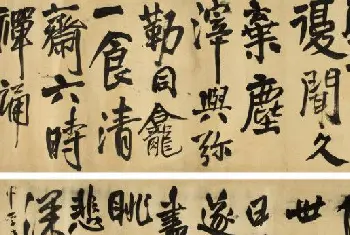 復聞久
棄塵
滓與彌
勒同龕
一食清
齋六時
禪誦
世
日
遂
書
眺
悲
深